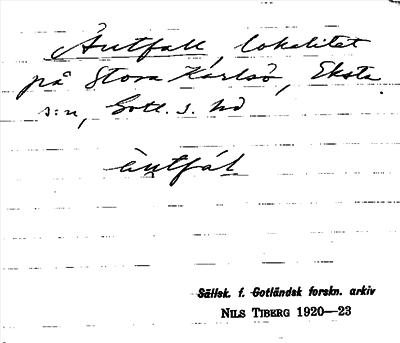 Äutfall, lokalitet
på Stora Karlsö, Eksta
s:n, Gotl. S. hd
äutfál
Sällsk. f. Gotländsk forskn. arkiv
NILS TIBERG 1920—23